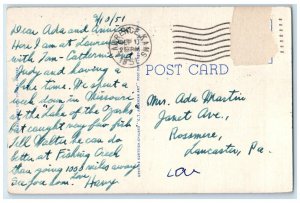 9/10/51
Dear Ada and Annie
Here I am at Lawrence
with Tom - Catherine and
Judy and having a
fine time. We spent a
week down in Missouri
at the Lake of the Ozarks
But caught very few fish
Tell Walter he can do
better at Fishing Creek
than going 1000 miles away
See you soon. Love Harry
LAWRENCE KANS
POST CARD
Mrs. Ada Martin
Janet Ave.,
Rossmere,
Lancaster, Pa.